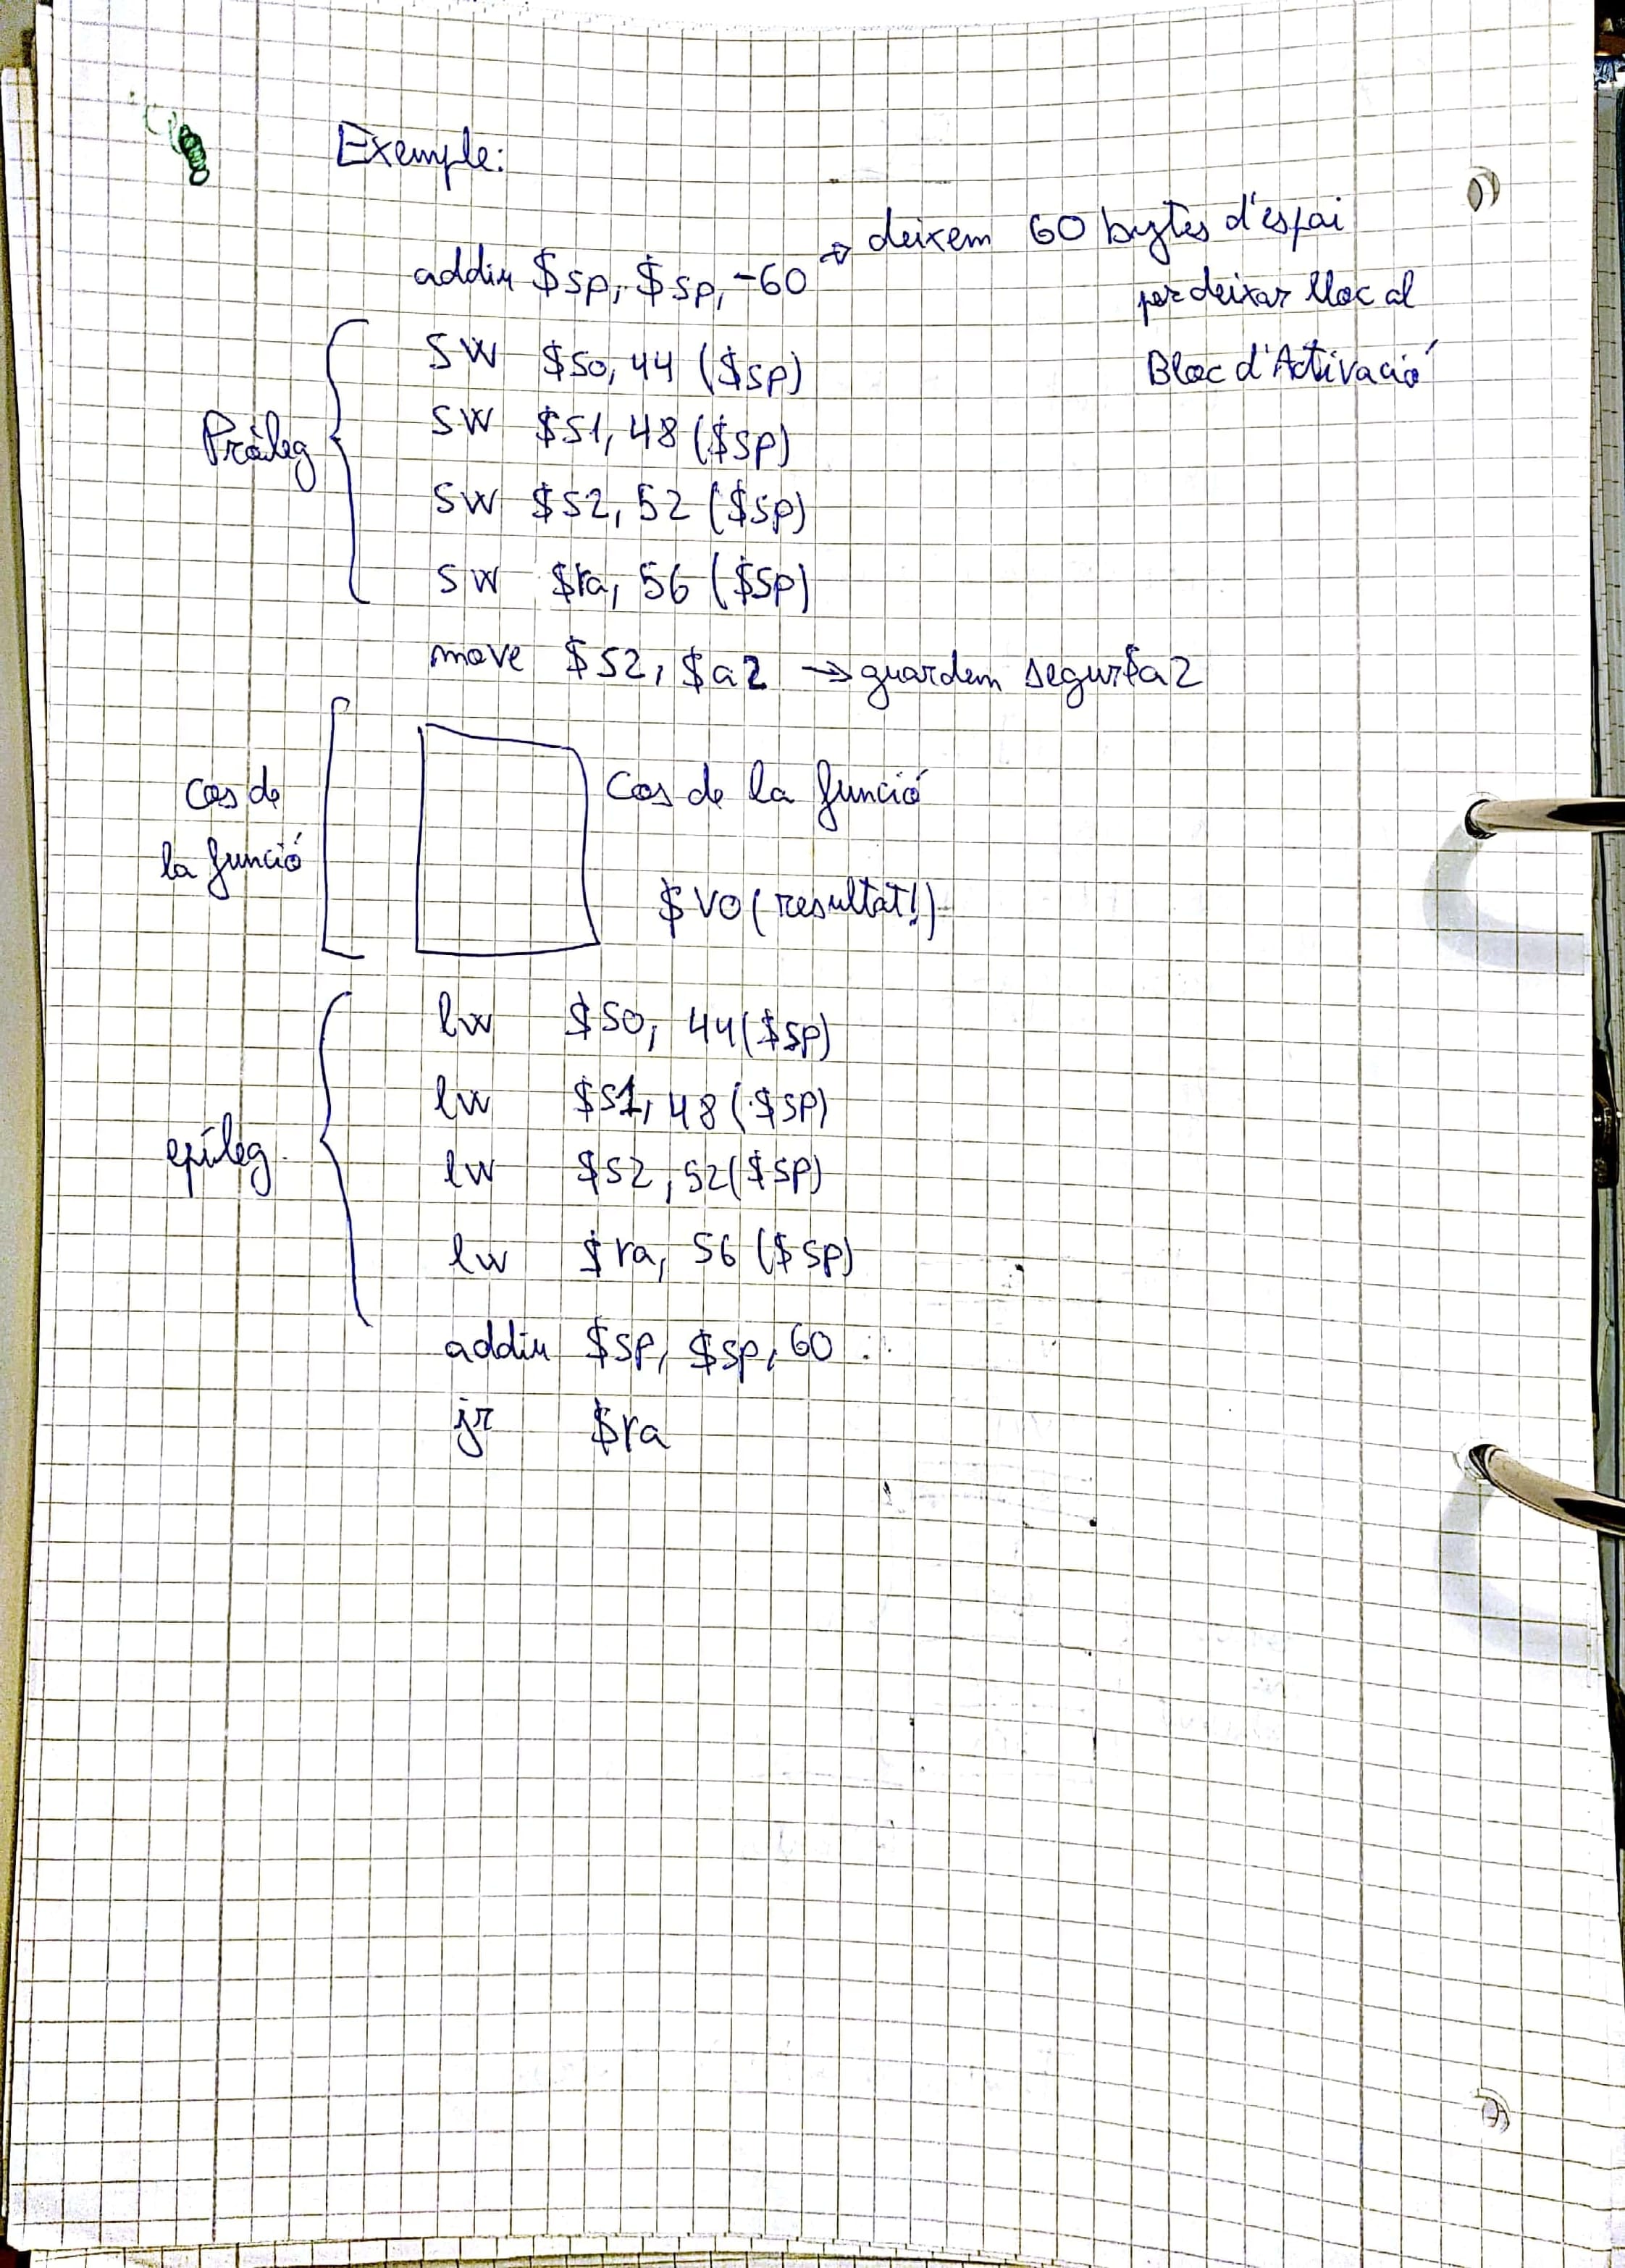 Exemple:
addiu $sp, $sp, -60 → deixem 60 bytes d'espai
per deixar lloc al
Bloc d'Activació
Pròleg
sw $s0, 44 ($sp)
sw $s1, 48 ($sp)
sw $s2, 52 ($sp)
sw $ra, 56 ($sp)
move $s2, $a2 → guardem segur $a2
cos de
la funció
Cos de la funció
$v0 (resultat!)
epíleg
lw $s0, 44($sp)
lw $s1, 48 ($sp)
lw $s2, 52($sp)
lw $ra, 56 ($sp)
addiu $sp, $sp, 60
jr $ra